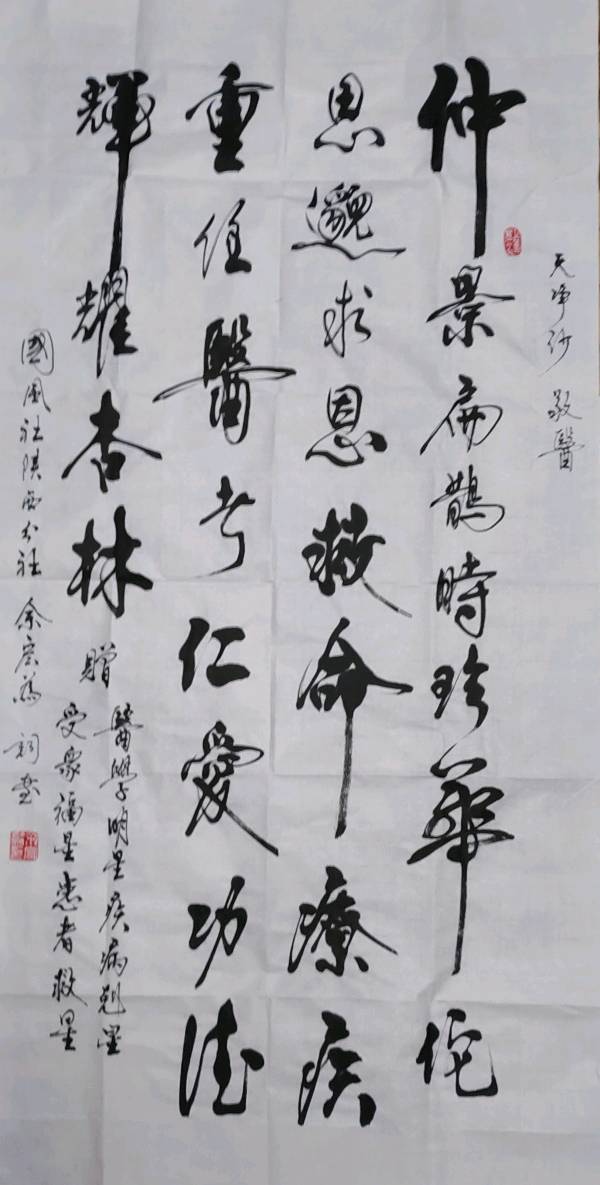 天净沙 敬醫
仲景扁鵲時珍華佗
思邈求恩救命療疾
重任醫者仁愛功德
輝耀杏林
贈
醫學明星疾病剋星
受眾福星患者救星
國風社陕西分社 余宏為 詞書